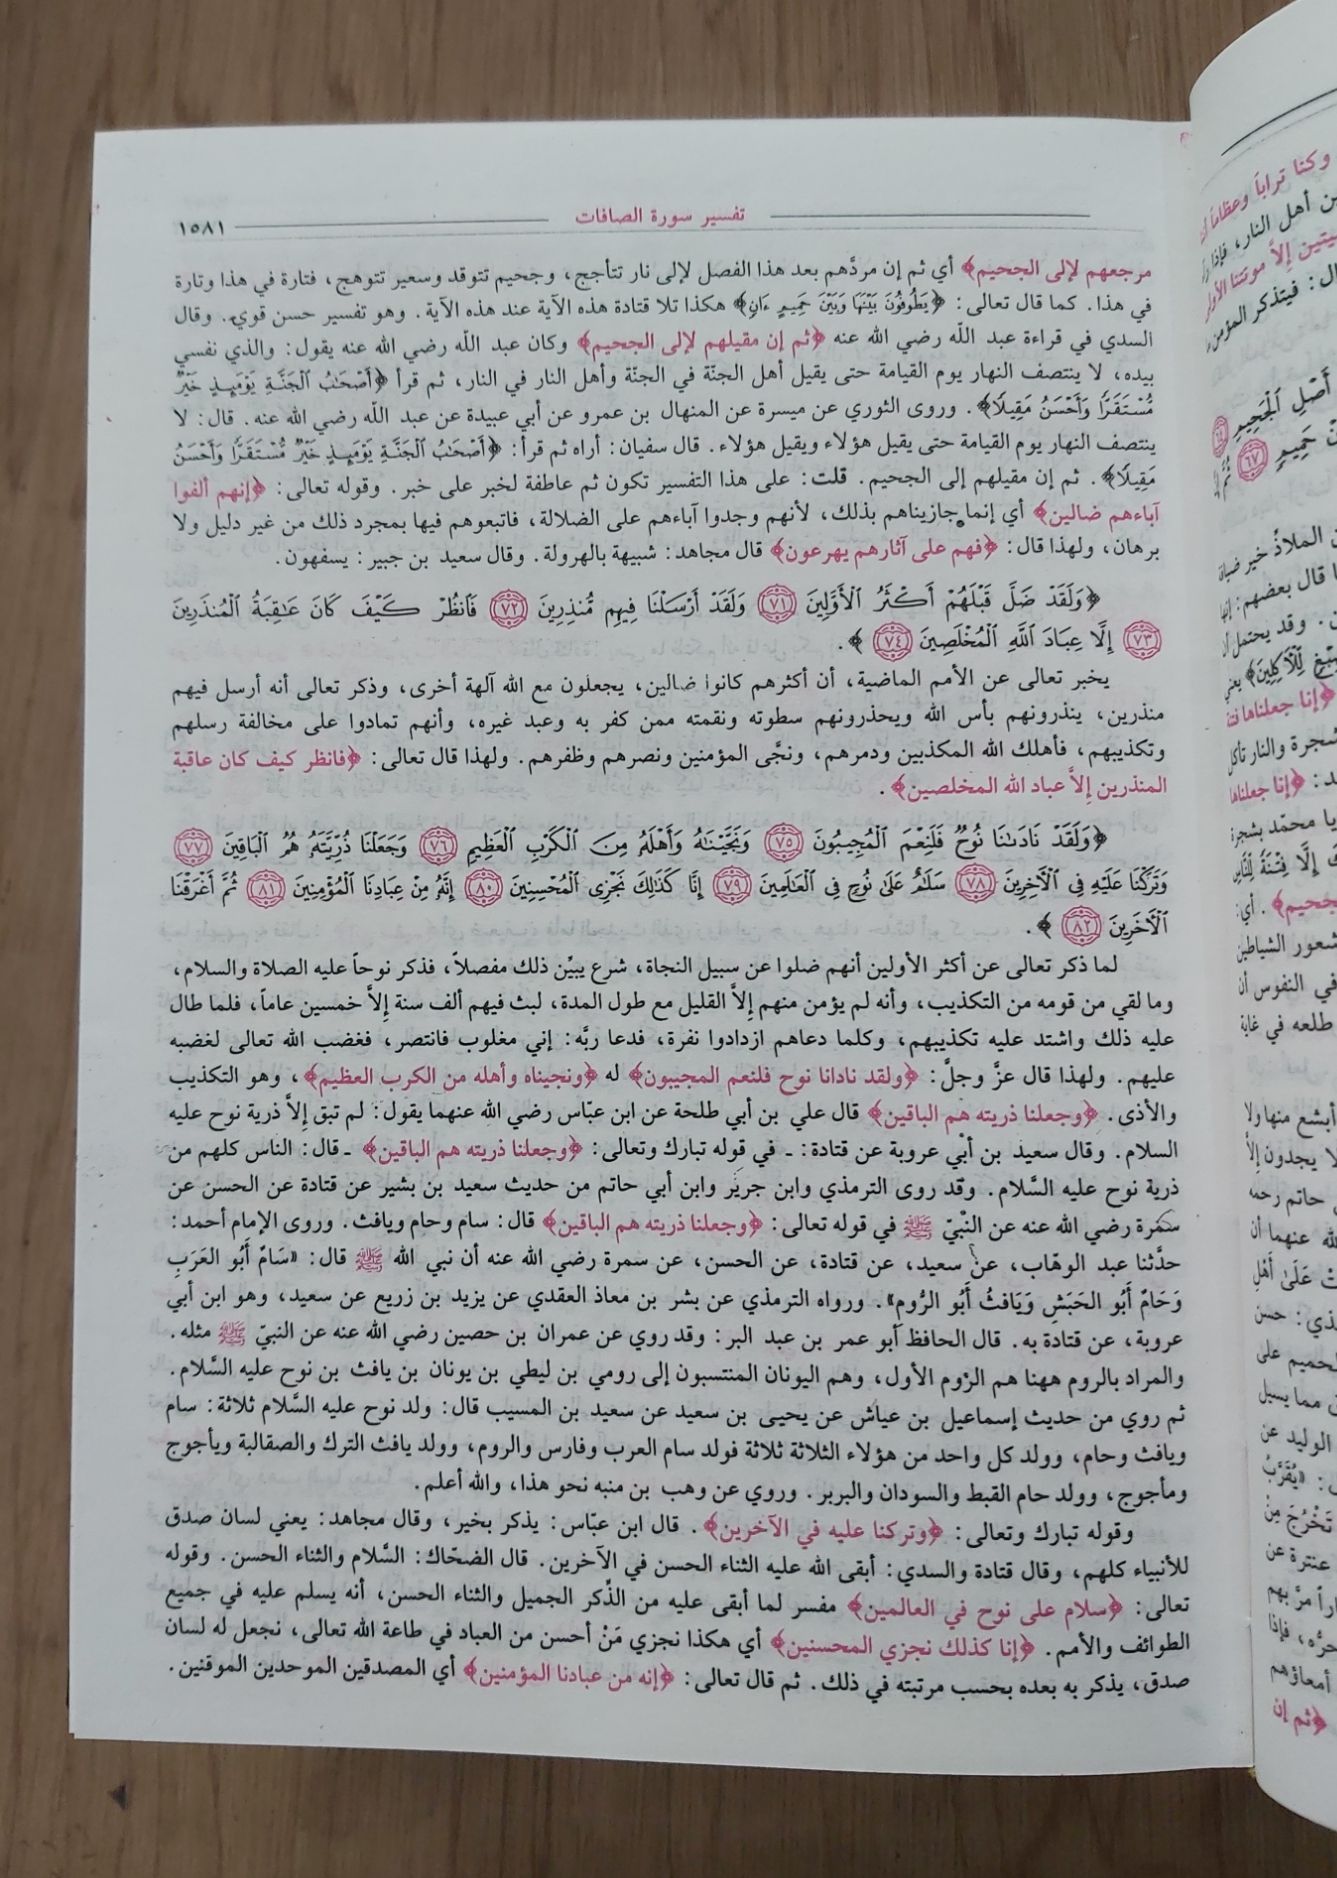 تفسير سورة الصافات
١٥٨١
مرجعهم لإلى الجحيم﴾ أي ثم إن مردَّهم بعد هذا الفصل لإلى نار تتأجج، وجحيم تتوقد وسعير تتوهج، فتارة في هذا وتارة
في هذا. كما قال تعالى: ﴿يَطُوفُونَ بَيْنَهَا وَبَيْنَ حَمِيمٍ ءَانٍ﴾ هكذا تلا قتادة هذه الآية عند هذه الآية. وهو تفسير حسن قوي. وقال
السدي في قراءة عبد اللّه رضي الله عنه ﴿ثم إن مقيلهم لإلى الجحيم﴾ وكان عبد اللّه رضي الله عنه يقول: والذي نفسي
بيده، لا ينتصف النهار يوم القيامة حتى يقيل أهل الجنّة في الجنّة وأهل النار في النار، ثم قرأ ﴿أَصْحَٰبُ ٱلْجَنَّةِ يَوْمَئِذٍ خَيْرٌ
مُّسْتَقَرًّا وَأَحْسَنُ مَقِيلًا﴾. وروى الثوري عن ميسرة عن المنهال بن عمرو عن أبي عبيدة عن عبد اللّه رضي الله عنه. قال: لا
ينتصف النهار يوم القيامة حتى يقيل هؤلاء ويقيل هؤلاء. قال سفيان: أراه ثم قرأ: ﴿أَصْحَٰبُ ٱلْجَنَّةِ يَوْمَئِذٍ خَيْرٌ مُّسْتَقَرًّا وَأَحْسَنُ
مَقِيلًا﴾. ثم إن مقيلهم إلى الجحيم. قلت: على هذا التفسير تكون ثم عاطفة لخبر على خبر. وقوله تعالى: ﴿إنهم ألفوا
آباءهم ضالين﴾ أي إنما جازيناهم بذلك، لأنهم وجدوا آباءهم على الضلالة، فاتبعوهم فيها بمجرد ذلك من غير دليل ولا
برهان، ولهذا قال: ﴿فهم على آثارهم يهرعون﴾ قال مجاهد: شبيهة بالهرولة. وقال سعيد بن جبير: يسفهون.
﴿وَلَقَدْ ضَلَّ قَبْلَهُمْ أَكْثَرُ ٱلْأَوَّلِينَ ٧١ وَلَقَدْ أَرْسَلْنَا فِيهِم مُّنذِرِينَ ٧٢ فَٱنظُرْ كَيْفَ كَانَ عَٰقِبَةُ ٱلْمُنذَرِينَ
٧٣ إِلَّا عِبَادَ ٱللَّهِ ٱلْمُخْلَصِينَ ٧٤﴾.
يخبر تعالى عن الأمم الماضية، أن أكثرهم كانوا ضالين، يجعلون مع الله آلهة أخرى، وذكر تعالى أنه أرسل فيهم
منذرين، ينذرونهم بأس الله ويحذرونهم سطوته ونقمته ممن كفر به وعبد غيره، وأنهم تمادوا على مخالفة رسلهم
وتكذيبهم، فأهلك الله المكذبين ودمرهم، ونجَّى المؤمنين ونصرهم وظفرهم. ولهذا قال تعالى: ﴿فانظر كيف كان عاقبة
المنذرين إلاَّ عباد الله المخلصين﴾.
﴿وَلَقَدْ نَادَىٰنَا نُوحٌ فَلَنِعْمَ ٱلْمُجِيبُونَ ٧٥ وَنَجَّيْنَٰهُ وَأَهْلَهُۥ مِنَ ٱلْكَرْبِ ٱلْعَظِيمِ ٧٦ وَجَعَلْنَا ذُرِّيَّتَهُۥ هُمُ ٱلْبَاقِينَ ٧٧
وَتَرَكْنَا عَلَيْهِ فِي ٱلْآخِرِينَ ٧٨ سَلَٰمٌ عَلَىٰ نُوحٍ فِي ٱلْعَٰلَمِينَ ٧٩ إِنَّا كَذَٰلِكَ نَجْزِي ٱلْمُحْسِنِينَ ٨٠ إِنَّهُۥ مِنْ عِبَادِنَا ٱلْمُؤْمِنِينَ ٨١ ثُمَّ أَغْرَقْنَا
ٱلْآخَرِينَ ٨٢﴾.
لما ذكر تعالى عن أكثر الأولين أنهم ضلوا عن سبيل النجاة، شرع يبيِّن ذلك مفصلاً، فذكر نوحاً عليه الصلاة والسلام،
وما لقي من قومه من التكذيب، وأنه لم يؤمن منهم إلاَّ القليل مع طول المدة، لبث فيهم ألف سنة إلاَّ خمسين عاماً، فلما طال
عليه ذلك واشتد عليه تكذيبهم، وكلما دعاهم ازدادوا نفرة، فدعا ربَّه: إني مغلوب فانتصر، فغضب الله تعالى لغضبه
عليهم. ولهذا قال عزَّ وجلَّ: ﴿ولقد نادانا نوح فلنعم المجيبون﴾ له ﴿ونجيناه وأهله من الكرب العظيم﴾، وهو التكذيب
والأذى. ﴿وجعلنا ذريته هم الباقين﴾ قال علي بن أبي طلحة عن ابن عبّاس رضي الله عنهما يقول: لم تبق إلاَّ ذرية نوح عليه
السلام. وقال سعيد بن أبي عروبة عن قتادة: ـ في قوله تبارك وتعالى: ﴿وجعلنا ذريته هم الباقين﴾ ـ قال: الناس كلهم من
ذرية نوح عليه السَّلام. وقد روى الترمذي وابن جرير وابن أبي حاتم من حديث سعيد بن بشير عن قتادة عن الحسن عن
سمرة رضي الله عنه عن النّبيّ ﷺ في قوله تعالى: ﴿وجعلنا ذريته هم الباقين﴾ قال: سام وحام ويافث. وروى الإمام أحمد:
حدَّثنا عبد الوهّاب، عن سعيد، عن قتادة، عن الحسن، عن سمرة رضي الله عنه أن نبي الله ﷺ قال: «سَامٌ أَبُو العَرَبِ
وَحَامٌ أَبُو الحَبَشِ وَيَافثُ أَبُو الرُّومِ». ورواه الترمذي عن بشر بن معاذ العقدي عن يزيد بن زريع عن سعيد، وهو ابن أبي
عروبة، عن قتادة به. قال الحافظ أبو عمر بن عبد البر: وقد روي عن عمران بن حصين رضي الله عنه عن النبيّ ﷺ مثله.
والمراد بالروم ههنا هم الرّوم الأول، وهم اليونان المنتسبون إلى رومي بن ليطي بن يونان بن يافث بن نوح عليه السَّلام.
ثم روي من حديث إسماعيل بن عياش عن يحيى بن سعيد عن سعيد بن المسيب قال: ولد نوح عليه السَّلام ثلاثة: سام
ويافث وحام، وولد كل واحد من هؤلاء الثلاثة ثلاثة فولد سام العرب وفارس والروم، وولد يافث الترك والصقالبة ويأجوج
ومأجوج، وولد حام القبط والسودان والبربر. وروي عن وهب بن منبه نحو هذا، والله أعلم.
وقوله تبارك وتعالى: ﴿وتركنا عليه في الآخرين﴾. قال ابن عبّاس: يذكر بخير، وقال مجاهد: يعني لسان صدق
للأنبياء كلهم، وقال قتادة والسدي: أبقى الله عليه الثناء الحسن في الآخرين. قال الضحّاك: السَّلام والثناء الحسن. وقوله
تعالى: ﴿سلام على نوح في العالمين﴾ مفسر لما أبقى عليه من الذِّكر الجميل والثناء الحسن، أنه يسلم عليه في جميع
الطوائف والأمم. ﴿إنا كذلك نجزي المحسنين﴾ أي هكذا نجزي مَنْ أحسن من العباد في طاعة الله تعالى، نجعل له لسان
صدق، يذكر به بعده بحسب مرتبته في ذلك. ثم قال تعالى: ﴿إنه من عبادنا المؤمنين﴾ أي المصدقين الموحدين الموقنين.